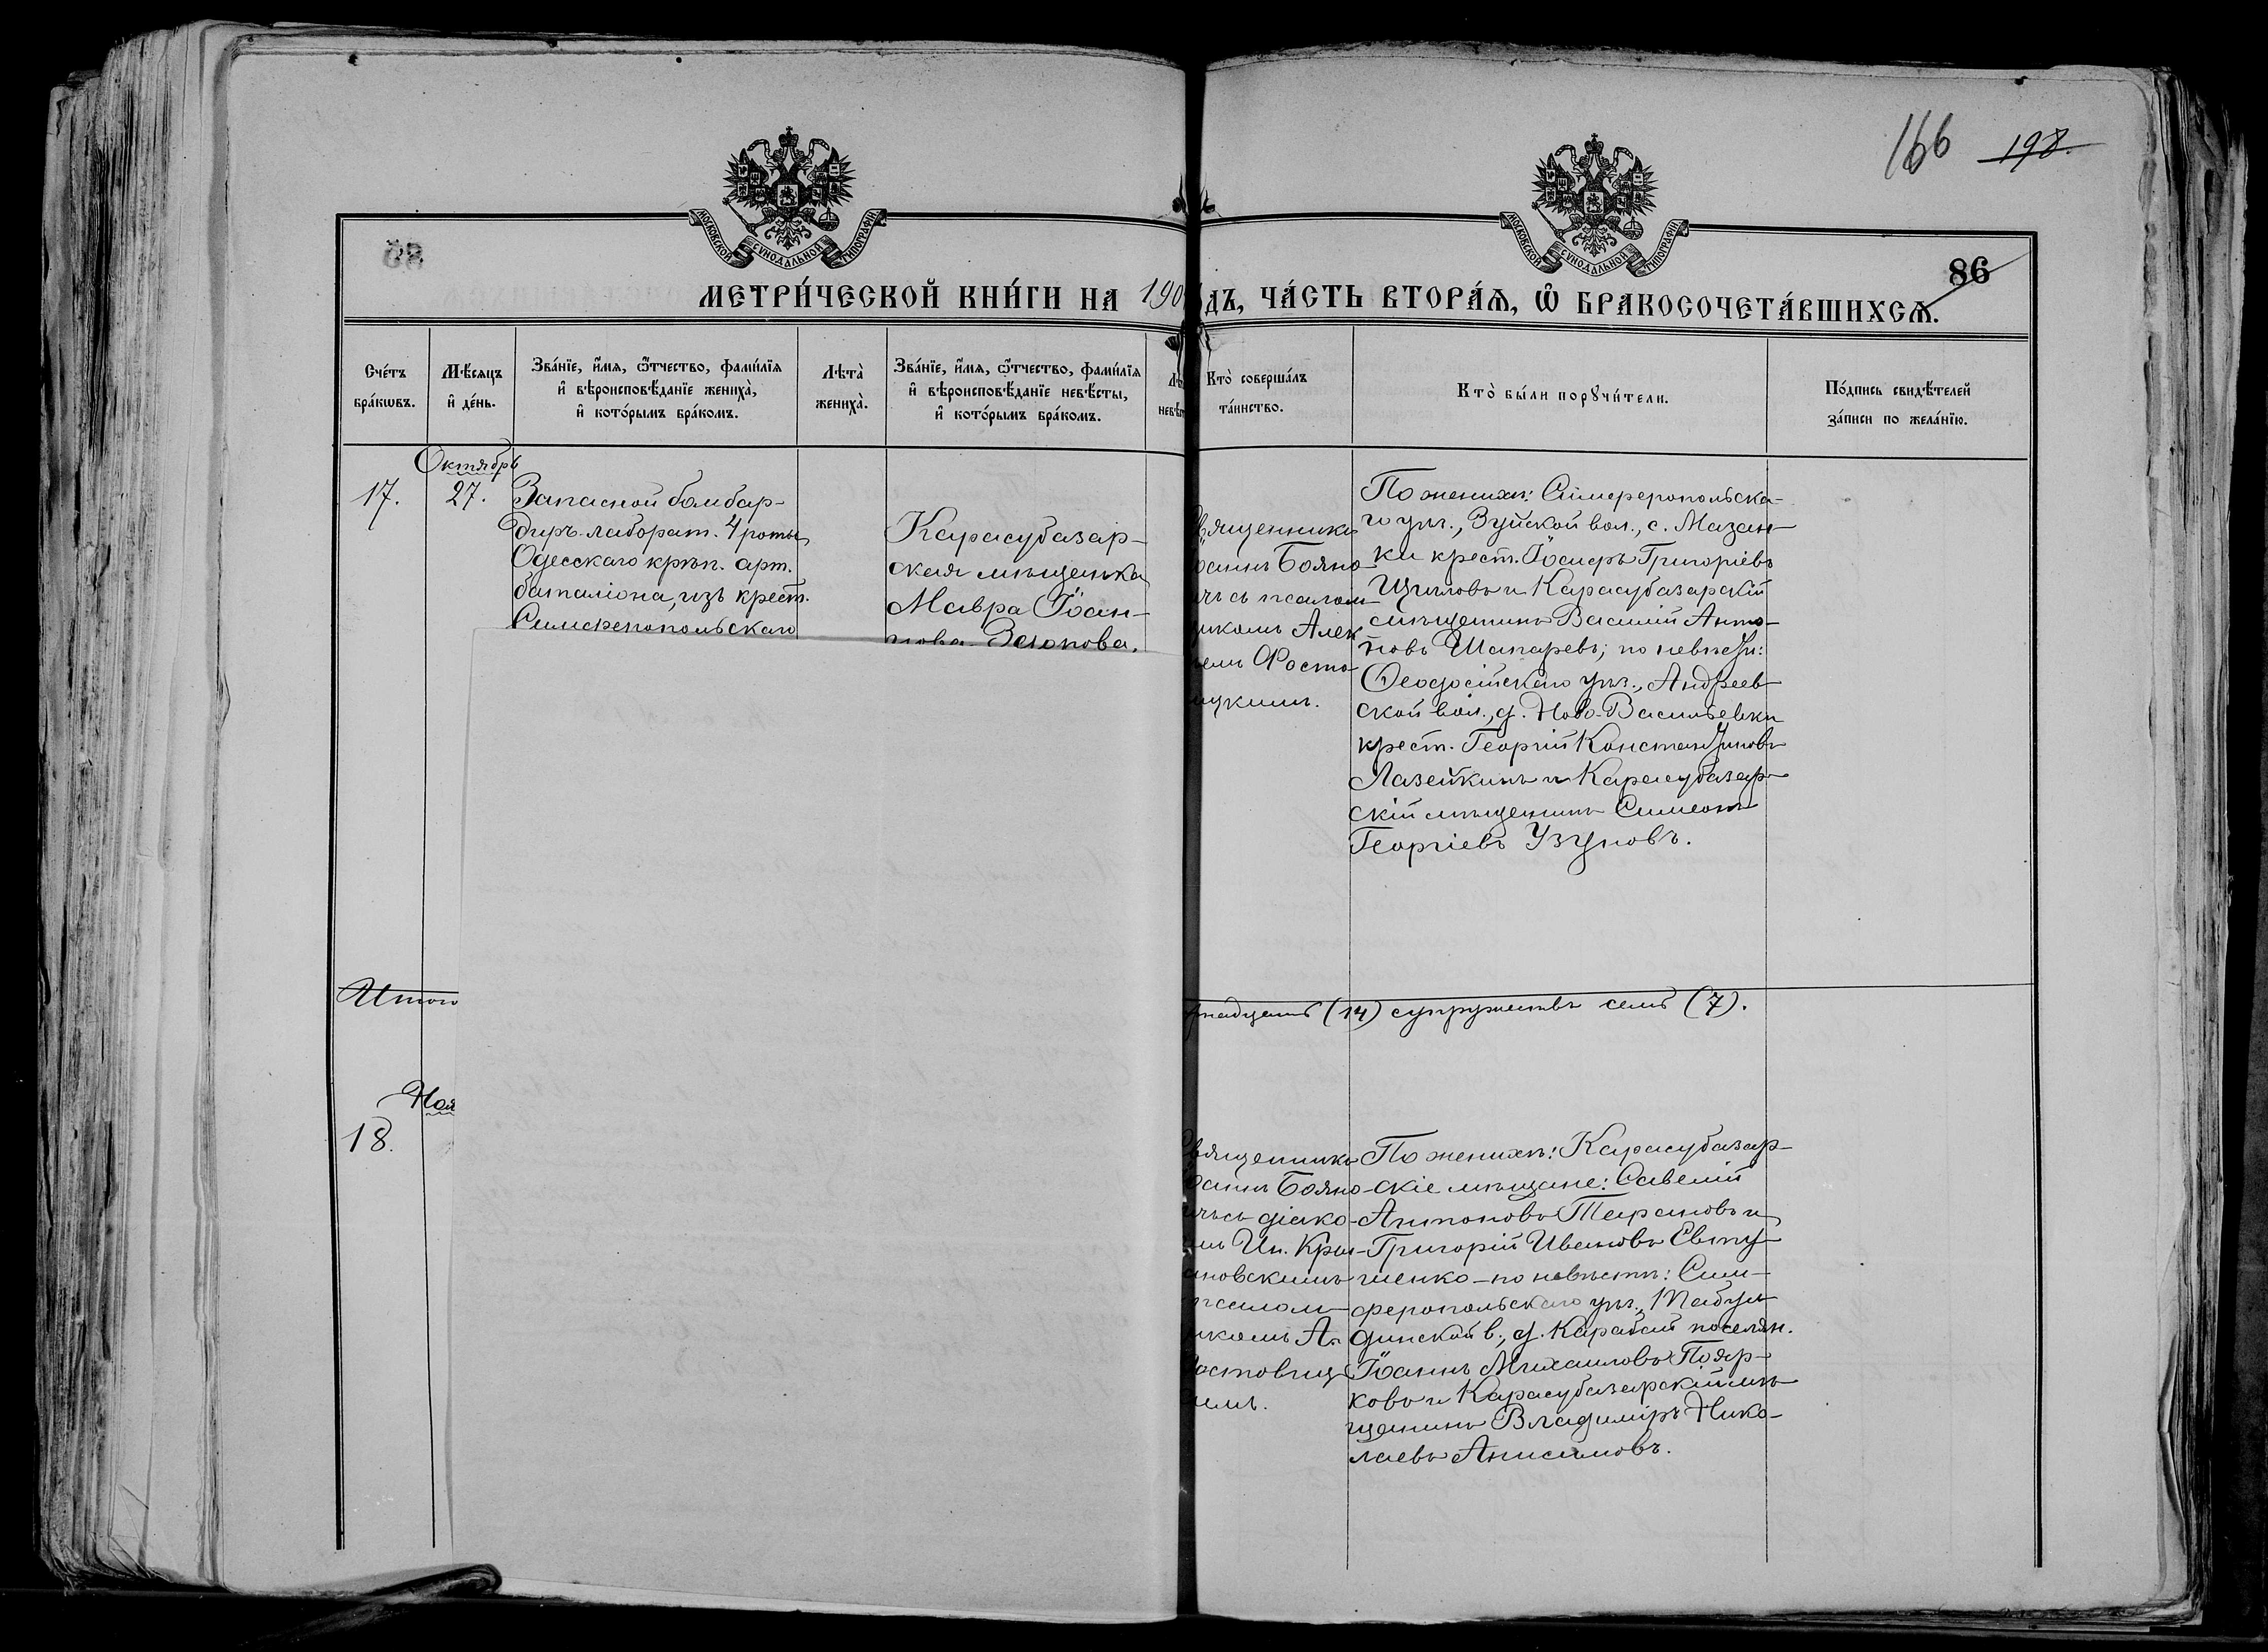 166 198.
МОСКОВСКОЙ СѴНОДАЛЬНОЙ ТИПОГРАФІИ
МОСКОВСКОЙ СѴНОДАЛЬНОЙ ТИПОГРАФІИ
86
МЕТРИ́ЧЕСКОЙ КНИ́ГИ НА 190
дъ, ЧА́СТЬ ВТОРА́Ѧ, Ѽ БРАКОСОЧЕТА́ВШИХСѦ.
Сче́тъ
бра́кѡвъ.
Мѣ́сяцъ
и҆ де́нь.
Зва́нїе, и҆́мя, ѻ҆́тчество, фами́лїя
и҆ вѣроисповѣ́данїе жениха̀,
и҆ кото́рымъ бра́комъ.
Лѣта̀
жениха̀.
Зва́нїе, и҆́мя, ѻ҆́тчество, фами́лїя
и҆ вѣроисповѣ́данїе невѣ́сты,
и҆ кото́рымъ бра́комъ.
Кто̀ соверша́лъ
та́инство.
Кто̀ бы́ли порꙋчи́тели.
По́дпись свидѣ́телей
за́писи по жела́нїю.
Октябрь
17.
27.
Запасной бомбар-
диръ-лаборат. 4 роты
Одесскаго крѣп. арт.
баталіона, изъ крест.
Симферопольскаго
Карасубазар-
ская мѣщанка
Мавра Іоан-
нова
вященникъ
оаннъ Бояно-
чъ съ псалом-
икомъ Алек
емъ Росто-
ицкимъ.
По женихѣ: Симферопольска-
го уѣз., Зуйской вол., с. Мазан-
ки крест. Іосифъ Григоріевъ
и Карасубазарскій
мѣщанинъ Василій Анто-
новъ Шапаревъ; по невѣстѣ:
Ѳеодосійскаго уѣз., Андреев-
ской вол., д. Ново-Васильевки
крест. Георгій Константиновъ
Лазейкинъ и Карасубазар-
скій мѣщанинъ Симеонъ
Георгіевъ Узуновъ.
Итого
надцать (14) супружествъ семь (7).
Ноя
18.
вященникъ
оаннъ Бояно-
чъ съ діако-
мъ Ин. Кры-
ановскимъ
псалом-
икомъ А.
остовиц
имъ.
По женихѣ: Карасубазар-
скіе мѣщане: Савелій
Антоновъ Тарановъ и
Григорій Ивановъ Евту-
шенко - по невѣстѣ: Сим-
феропольскаго уѣз., Табул-
динской в., д. поселян.
Іоаннъ Михаиловъ Пояр-
ковъ и Карасубазарскій мѣ-
щанинъ Владиміръ Нико-
лаевъ Анисимовъ.